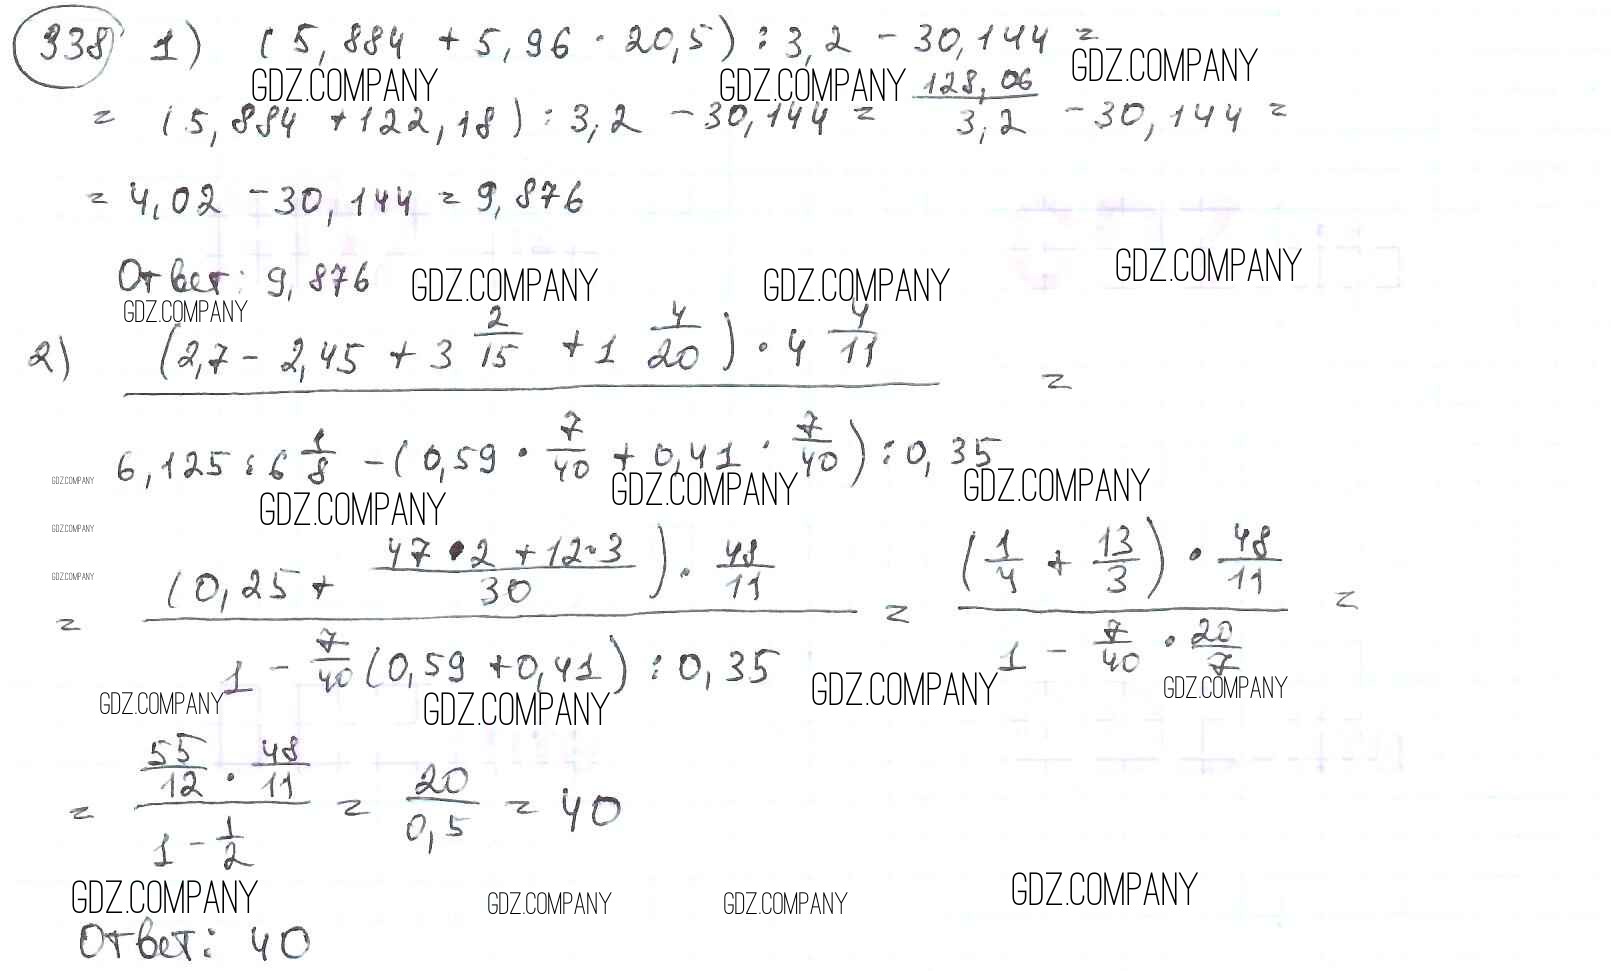 338 1) (5,884 + 5,96 · 20,5) : 3,2 - 30,144 =
GDZ.COMPANY GDZ.COMPANY GDZ.COMPANY
= (5,884 + 122,18) : 3,2 - 30,144 = 128,06/3,2 - 30,144 =
= 4,02 - 30,144 = 9,876
Ответ: 9,876
GDZ.COMPANY GDZ.COMPANY GDZ.COMPANY
GDZ.COMPANY
2) (2,7 - 2,45 + 3 2/15 + 1 4/20) · 4 4/11 =
6,125 : 6 1/8 - (0,59 · 7/40 + 0,41 · 7/40) : 0,35
GDZ.COMPANY GDZ.COMPANY GDZ.COMPANY GDZ.COMPANY
GDZ.COMPANY
GDZ.COMPANY
= (0,25 + 47·2 + 12·3/30) · 48/11 = (1/4 + 13/3) · 48/11 =
1 - 7/40 (0,59 + 0,41) : 0,35 1 - 7/40 · 20/7
GDZ.COMPANY GDZ.COMPANY GDZ.COMPANY GDZ.COMPANY
= 55/12 · 48/11 = 20/0,5 = 40
1 - 1/2
GDZ.COMPANY GDZ.COMPANY GDZ.COMPANY GDZ.COMPANY
Ответ: 40